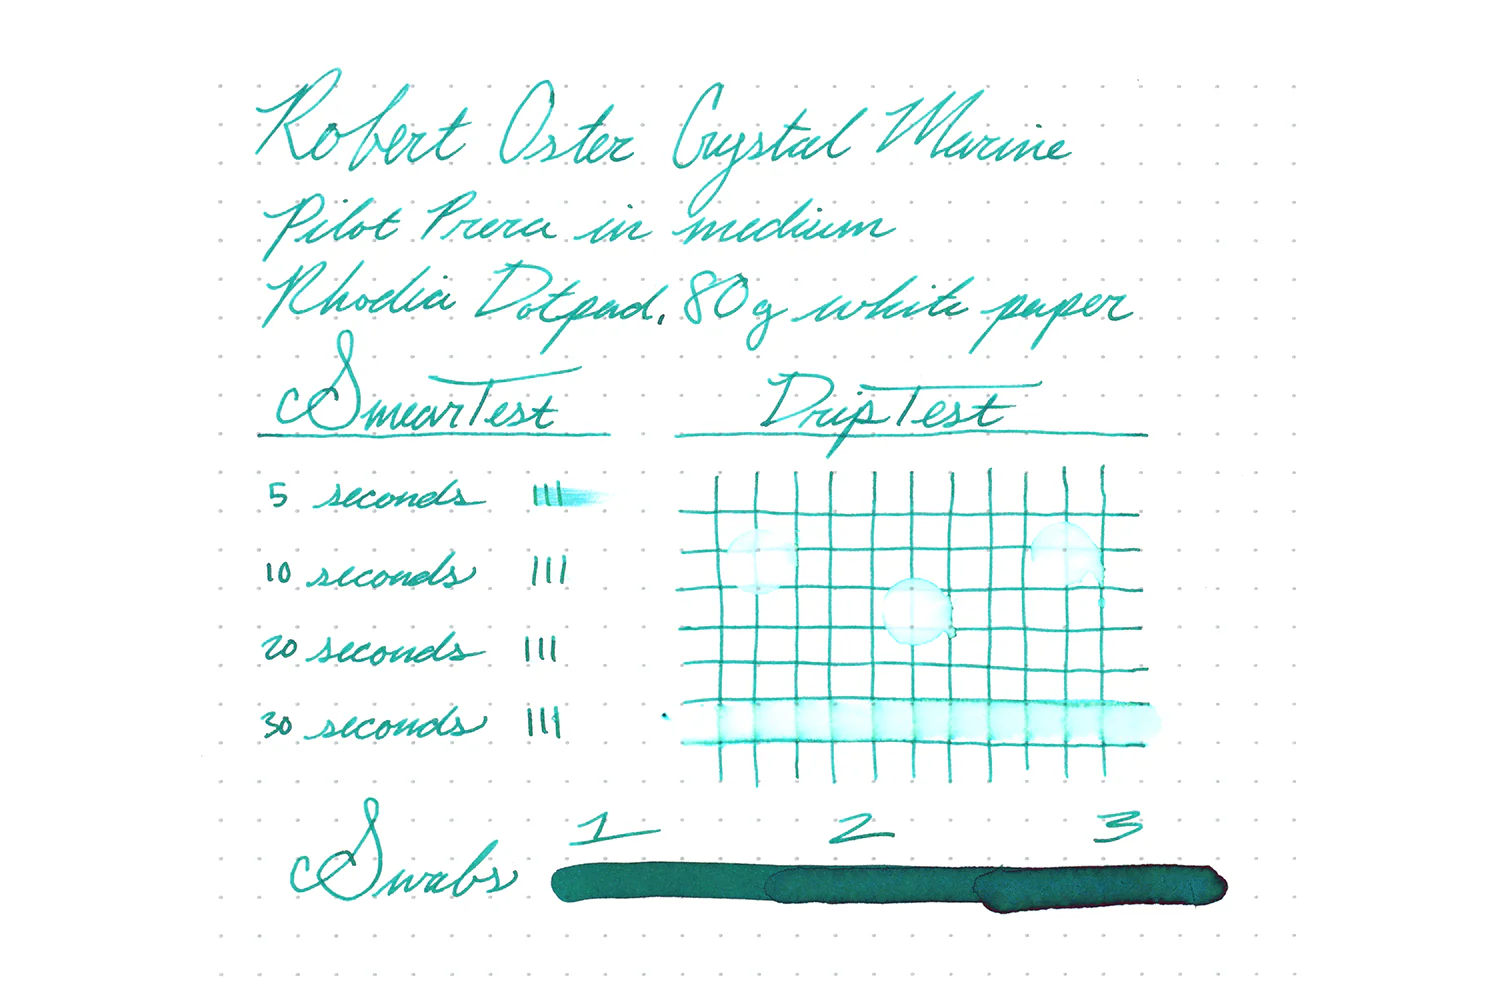 Robert Oster Crystal Marine
Pilot Prera in medium
Rhodia Dotpad, 80g white paper
Smear Test
Drip Test
5 seconds
10 seconds
20 seconds
30 seconds
1 2 3
Swabs